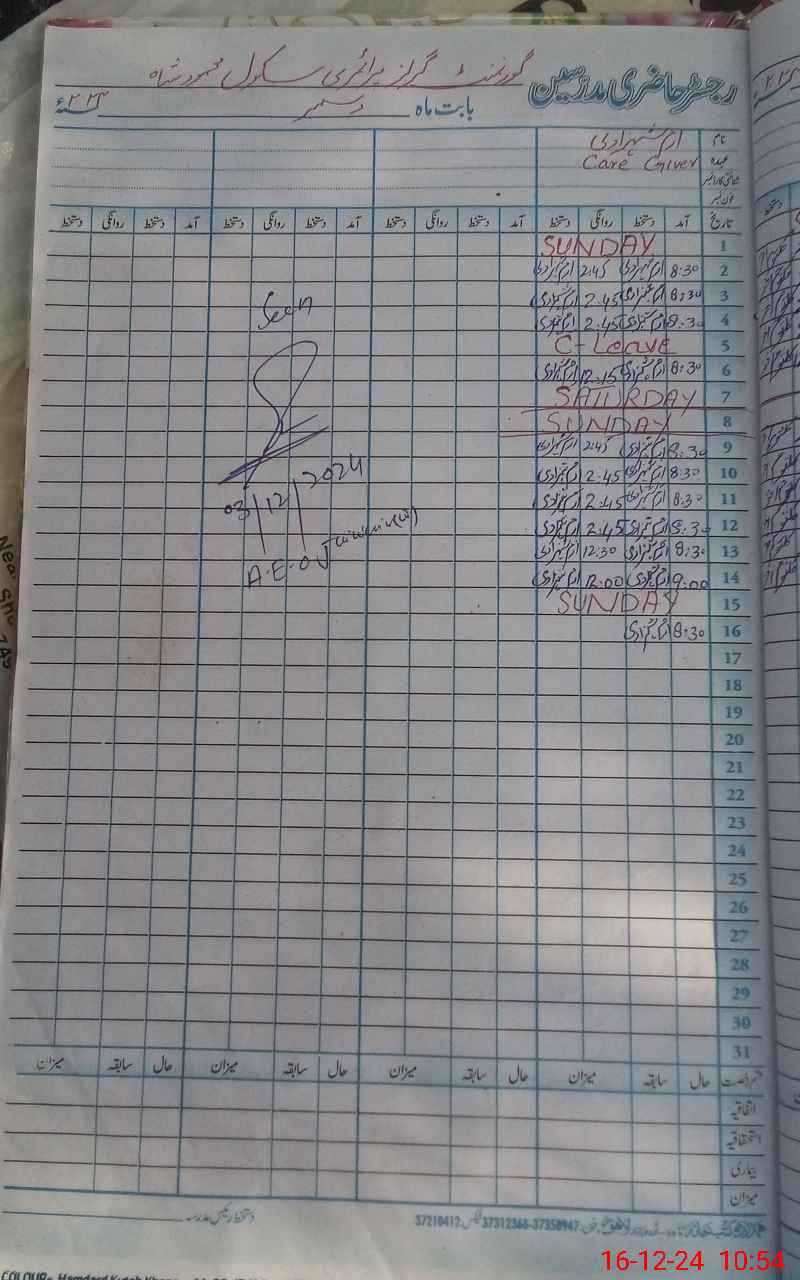 رجسٹر حاضری مدرسین
گورنمنٹ گرلز پرائمری سکول محمود شاہ
بابت ماہ دسمبر
نام ارم شہزادی
عہدہ Care Giver
شناختی کارڈ نمبر
فون نمبر
تاریخ آمد دستخط روانگی دستخط آمد دستخط روانگی دستخط آمد دستخط روانگی دستخط آمد دستخط روانگی دستخط
1 SUNDAY
2 8:30 ارم شہزادی 2:45 ارم شہزادی
3 8:30 ارم شہزادی 2:45 ارم شہزادی
4 8:30 ارم شہزادی 2:45 ارم شہزادی
5 C-Leave
6 8:30 ارم شہزادی 12:15 ارم شہزادی
7 SATURDAY
8 SUNDAY
9 8:30 ارم شہزادی 2:45 ارم شہزادی
10 8:30 ارم شہزادی 2:45 ارم شہزادی
11 8:30 ارم شہزادی 2:45 ارم شہزادی
12 8:30 ارم شہزادی 2:45 ارم شہزادی
13 8:30 ارم شہزادی 12:30 ارم شہزادی
14 9:00 ارم شہزادی 12:00 ارم شہزادی
15 SUNDAY
16 8:30 ارم شہزادی
17
18
19
20
21
22
23
24
25
26
27
28
29
30
31
Seen
03/12/2024
A.E.O
حال سابقہ میزان حال سابقہ میزان حال سابقہ میزان حال سابقہ میزان
اتفاقیہ
استحقاقیہ
بیماری
میزان
دستخط رئیس مدرسہ
37210412 37312368-37358947
16-12-24 10:54